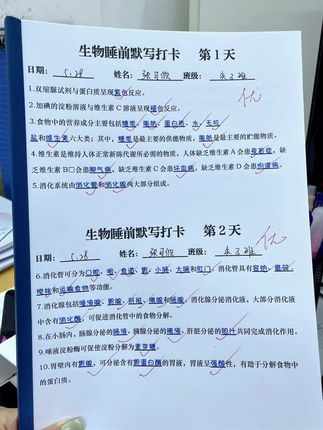 生物睡前默写打卡 第1天
日期: 5.28 姓名: 班级:
1.双缩脲试剂与蛋白质呈现紫色反应。
2.加碘的淀粉溶液与维生素C溶液呈现褪色反应。
3.食物中的营养成分主要包括糖类、脂肪、蛋白质、水、无机
盐和维生素六大类;其中,糖类是最主要的供能物质,脂肪是最主要的贮能物质。
4.维生素是维持人体正常新陈代谢所必需的物质,人体缺乏维生素A会患夜盲症,缺
乏维生素B会患脚气病,缺乏维生素C会患坏血病,缺乏维生素D会患佝偻病。
5.消化系统由消化管和消化腺两大部分组成。
优
生物睡前默写打卡 第2天
日期: 5.28 姓名: 班级:
6.消化管可分为口腔、咽、食道、胃、小肠、大肠和肛门。消化管具有容纳、磨碎、
搅拌和运输食物等功能。
7.消化腺包括唾液腺、胃腺、肝脏、胰腺和肠腺。消化腺分泌消化液,大部分消化液
中含有消化酶,可促进消化管中的食物分解。
8.在小肠内,肠腺分泌的肠液、胰腺分泌的胰液、肝脏分泌的胆汁共同完成消化作用。
9.唾液淀粉酶可促使淀粉分解为麦芽糖。
10.胃壁内有胃腺,可分泌含有胃蛋白酶的胃液,胃液呈强酸性,有助于分解食物中
的蛋白质。
优